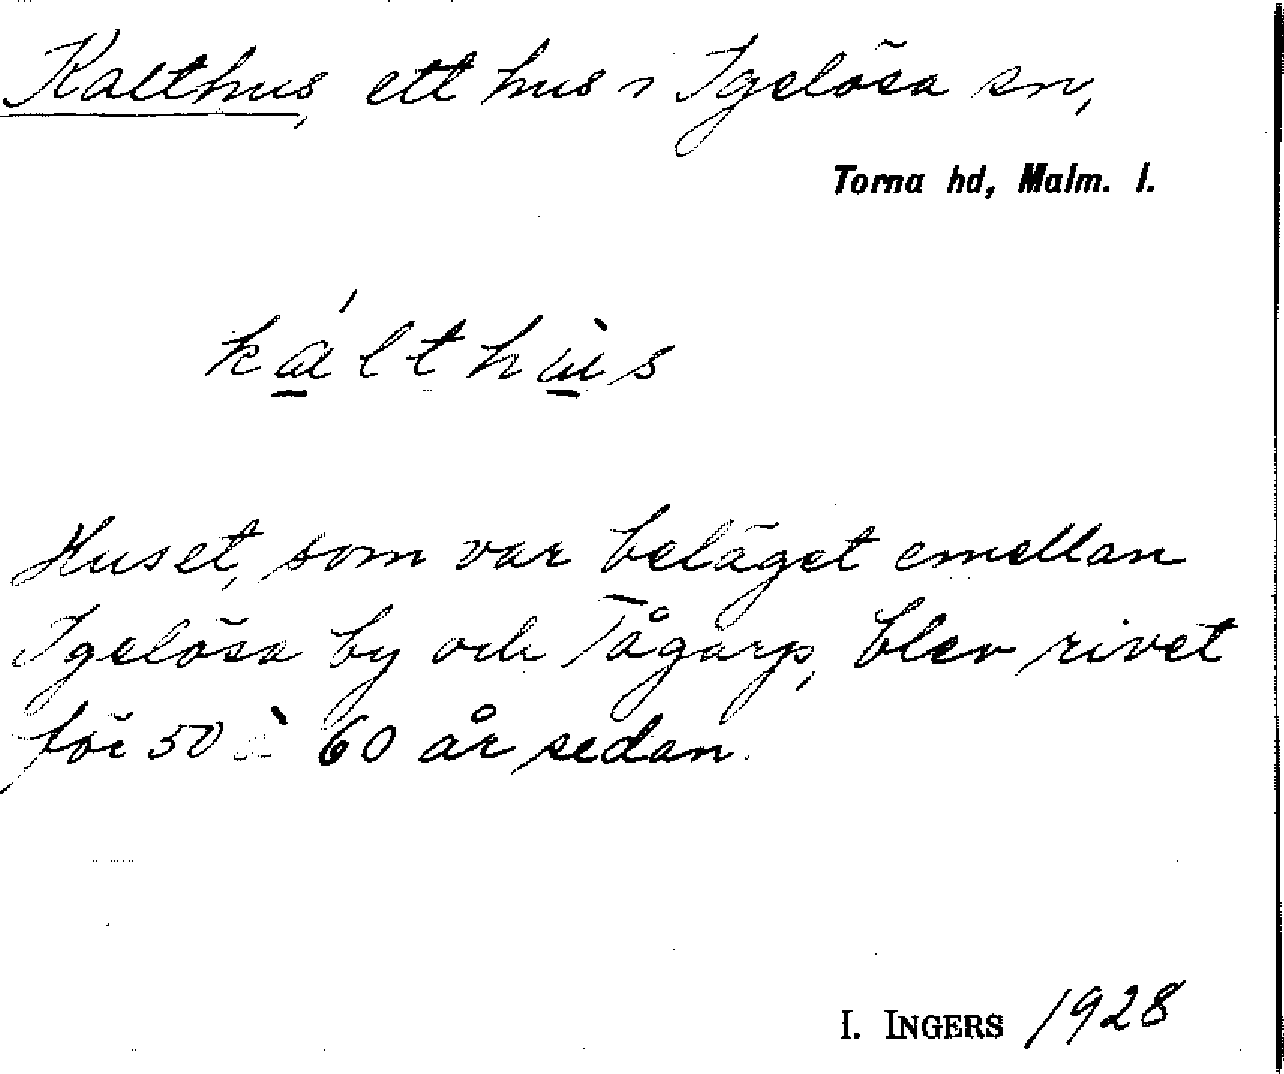 Kalthus, ett hus i Igelösa sn,
Torna hd, Malm. l.
kálthùs
Huset, som var beläget emellan
Igelösa by och Tågarp, blev rivet
för 50 à 60 år sedan.
I. INGERS 1928